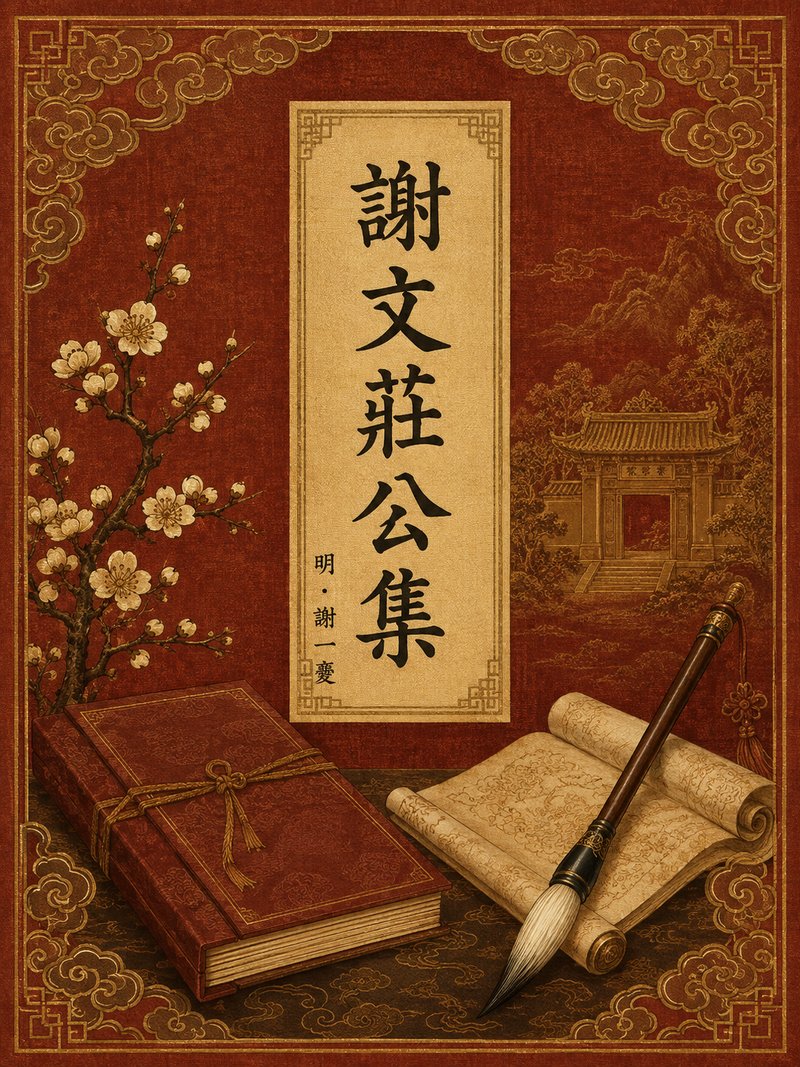 謝文莊公集
明·謝一夔